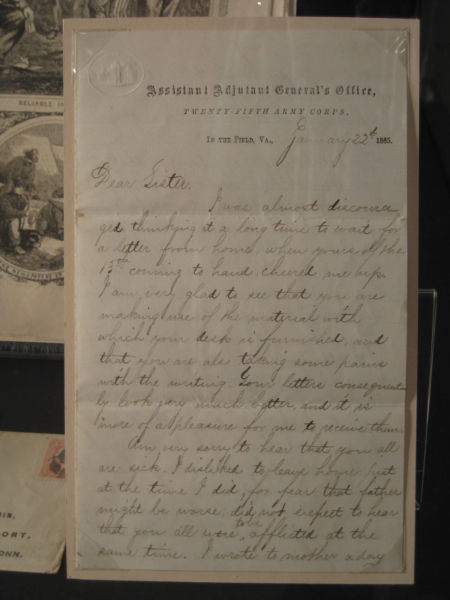 RELIABLE
Assistant Adjutant General's Office,
TWENTY-FIFTH ARMY CORPS,
IN THE FIELD, VA., January 22d 1865.
Dear Sister.
I was almost discoura
ged thinking it a long time to wait for
a letter from home, when yours of the
15th coming to hand cheered me up.
I am very glad to see that you are
making use of the material with
which your desk is furnished, and
that you are also taking some pains
with the writing. Your letters consequent
ly look very much better, and it is
more of a pleasure for me to receive them.
Am very sorry to hear that you all
are sick. I disliked to leave home just
at the time I did, for fear that father
might be worse, did not expect to hear
that you all were to be afflicted at the
same time. I wrote to mother a day
ORT,
ONN.